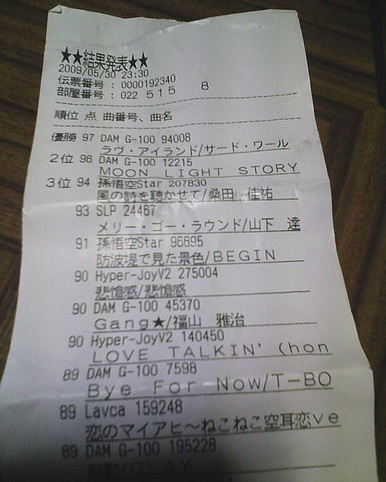 ★★結果発表★★
2009/05/30 23:30
伝票番号 : 0000192340
部屋番号 : 022 515 8
順位 点 曲番号、曲名
優勝 97 DAM G-100 94008
ラヴ・アイランド/サード・ワール
2位 96 DAM G-100 12215
MOON LIGHT STORY
3位 94 孫悟空Star 207830
風の詩を聴かせて/桑田 佳祐
93 SLP 24467
メリー・ゴー・ラウンド/山下 達
91 孫悟空Star 96695
防波堤で見た景色/BEGIN
90 Hyper-JoyV2 275004
悲愴感/悲愴感
90 DAM G-100 45370
Gang★/福山 雅治
90 Hyper-JoyV2 140450
LOVE TALKIN'(hon
89 DAM G-100 7598
Bye For Now/T-BO
89 Lavca 159248
恋のマイアヒ~ねこねこ空耳恋ve
89 DAM G-100 195228
/GLAY